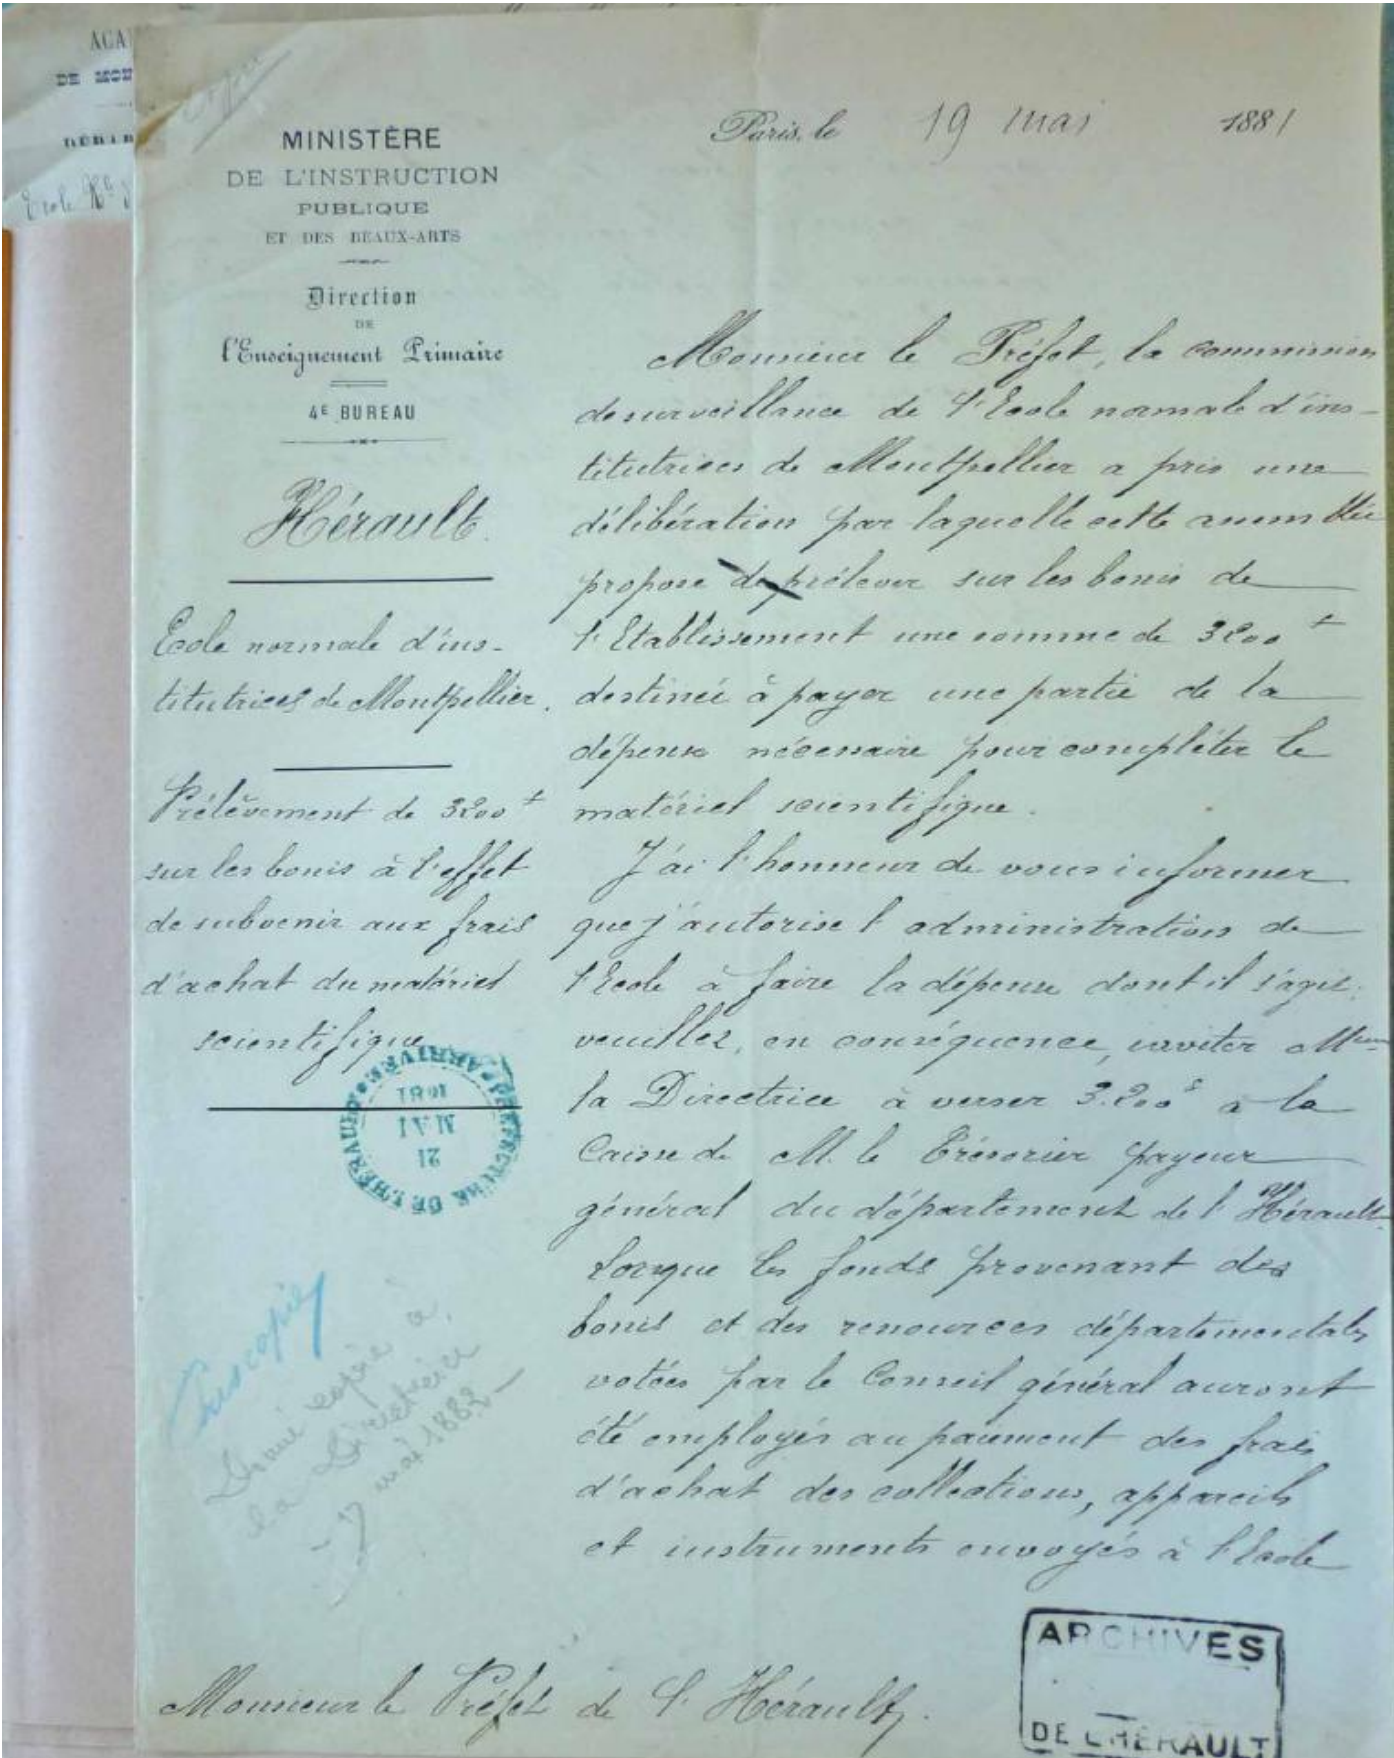 ACA
DE MON
DÉPAR
Ecole N
MINISTÈRE
DE L'INSTRUCTION
PUBLIQUE
ET DES BEAUX-ARTS
Direction
DE
l'Enseignement Primaire
4E BUREAU
Hérault.
Ecole normale d'ins-
titutrices de Montpellier.
Prélèvement de 3200 f
sur les bonis à l'effet
de subvenir aux frais
d'achat du matériel
scientifique
PRÉFECTURE DE L'HÉRAULT ARRIVÉE
21
MAI
1881
copie à
la Directrice
mai 188
Paris, le 19 mai 1881
Monsieur le Préfet, la commission
de surveillance de l'Ecole normale d'ins-
titutrices de Montpellier a pris une
délibération par laquelle cette assemblée
propose de prélever sur les bonis de
l'Etablissement une somme de 3200 f
destinée à payer une partie de la
dépense nécessaire pour compléter le
matériel scientifique.
J'ai l'honneur de vous informer
que j'autorise l'administration de
l'Ecole à faire la dépense dont il s'agit;
veuillez, en conséquence, inviter Mme
la Directrice à verser 3.200 f à la
Caisse de M. le Trésorier payeur
général du département de l'Hérault.
Lorsque les fonds provenant des
bonis et des ressources départementales
votées par le Conseil général auront
été employés au paiement des frais
d'achat des collections, appareils
et instruments envoyés à l'Ecole
Monsieur le Préfet de l'Hérault.
ARCHIVES
DE L'HÉRAULT